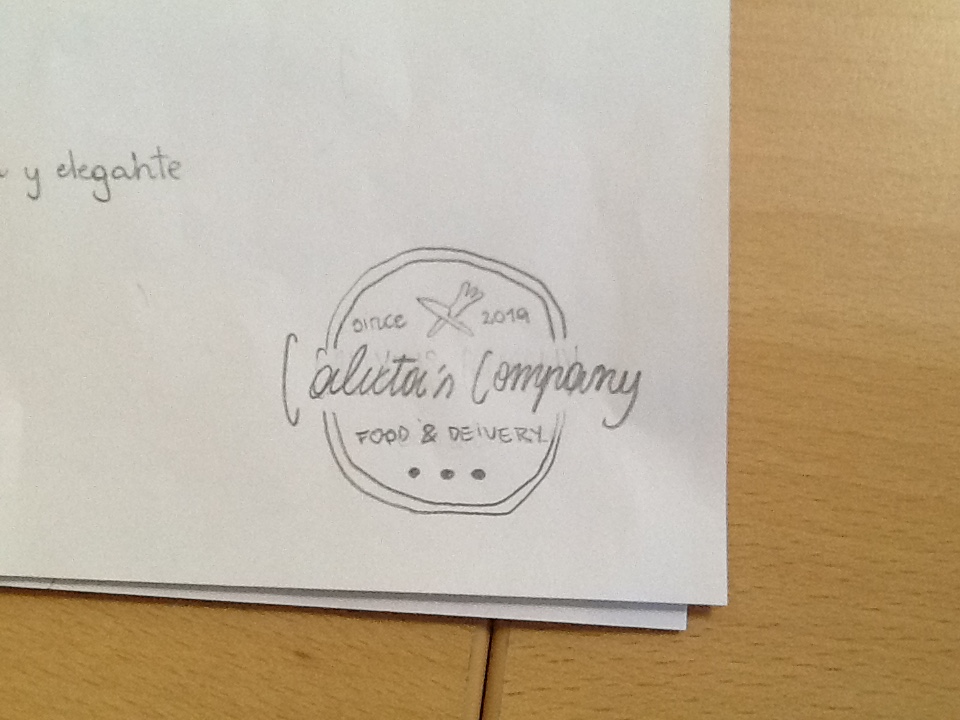 y elegante
since 2019
Calixta's Company
FOOD & DEIVERY